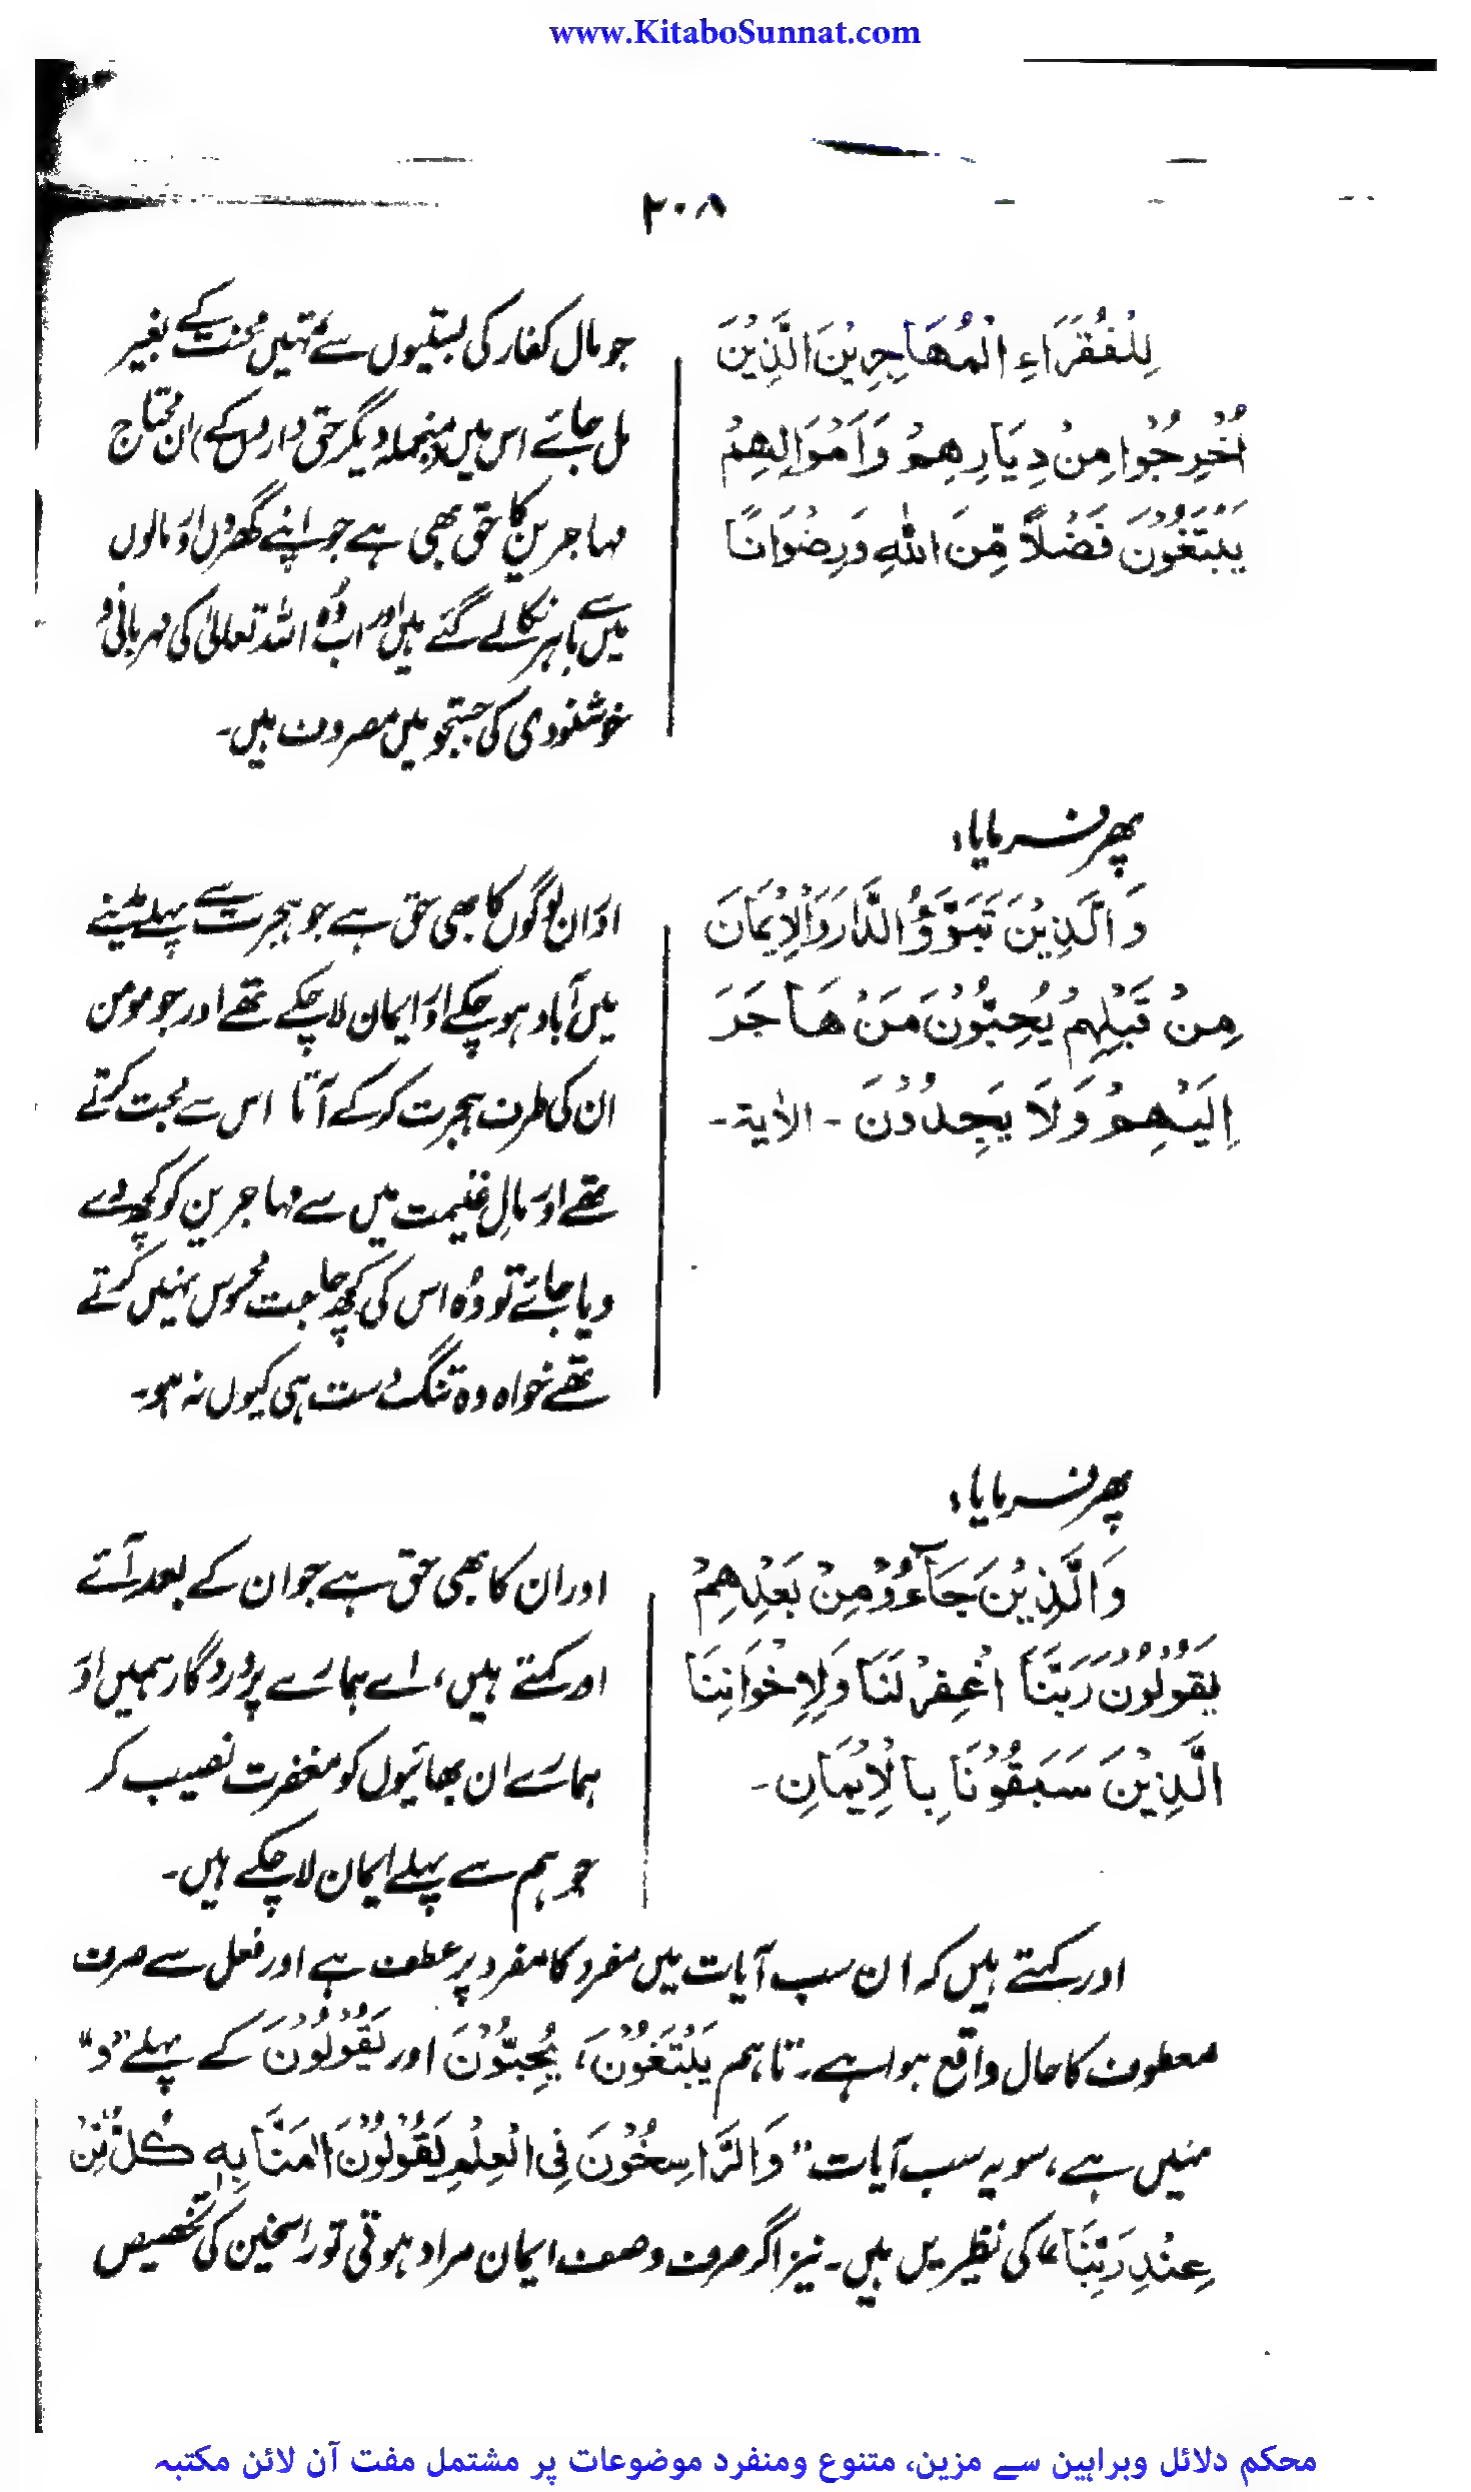 www.KitaboSunnat.com
۲۰۸
لِلْفُقَرَاءِ الْمُهَاجِرِيْنَ الَّذِيْنَ
اُخْرِجُوْا مِنْ دِيَارِهِمْ وَاَمْوَالِهِمْ
يَبْتَغُوْنَ فَضْلًا مِّنَ اللهِ وَرِضْوَانًا
جو مال کفار کی بستیوں سے تمہیں محنت کے بغیر
مل جائے اس میں (منجملہ دیگر حق داروں کے) ان محتاج
مہاجرین کا حق بھی ہے جو اپنے گھروں اور مالوں
میں سے باہر نکالے گئے ہیں اور اب وُہ اللہ تعالیٰ کی مہربانی و
خوشنودی کی جستجو میں مصروف ہیں۔
پھر فرمایا:
وَالَّذِيْنَ تَبَوَّؤُ الدَّارَ وَالْاِيْمَانَ
مِنْ قَبْلِهِمْ يُحِبُّوْنَ مَنْ هَاجَرَ
اِلَيْهِمْ وَلَا يَجِدُوْنَ ۔ الاٰية۔
اور ان لوگوں کا بھی حق ہے جو ہجرت سے پہلے مدینے
میں آباد ہو چکے اور ایمان لا چکے تھے اور جو مومن
ان کی طرف ہجرت کرکے آتا اس سے محبت کرتے
تھے اور مالِ غنیمت میں سے مہاجرین کو کچھ دے
دیا جائے تو وُہ اس کی کچھ حاجت محسوس نہیں کرتے
تھے خواہ وہ تنگ دست ہی کیوں نہ ہو۔
پھر فرمایا:
وَالَّذِيْنَ جَآءُوْ مِنْ بَعْدِهِمْ
يَقُوْلُوْنَ رَبَّنَا اغْفِرْ لَنَا وَلِاِخْوَانِنَا
الَّذِيْنَ سَبَقُوْنَا بِالْاِيْمَانِ ۔
اور ان کا بھی حق ہے جو ان کے بعد آتے
اور کہتے ہیں، اے ہمارے پروردگار ہمیں اور
ہمارے ان بھائیوں کو مغفرت نصیب کر
جو ہم سے پہلے ایمان لا چکے ہیں۔
اور کہتے ہیں کہ ان سب آیات میں مفرد کا مفرد پر عطف ہے اور فعل سے صرف
معطوف کا حال واقع ہوا ہے۔ تاہم يَبْتَغُوْنَ، يُحِبُّوْنَ اور يَقُوْلُوْنَ کے پہلے "و"
نہیں ہے، سو یہ سب آیات "وَالرَّاسِخُوْنَ فِي الْعِلْمِ يَقُوْلُوْنَ اٰمَنَّا بِهٖ كُلٌّ مِّنْ
عِنْدِ رَبِّنَا" کی نظیریں ہیں۔ نیز اگر صرف وصف ایمان مراد ہوتی تو راسخین کی تخصیص
محکم دلائل وبراہین سے مزین، متنوع ومنفرد موضوعات پر مشتمل مفت آن لائن مکتبہ